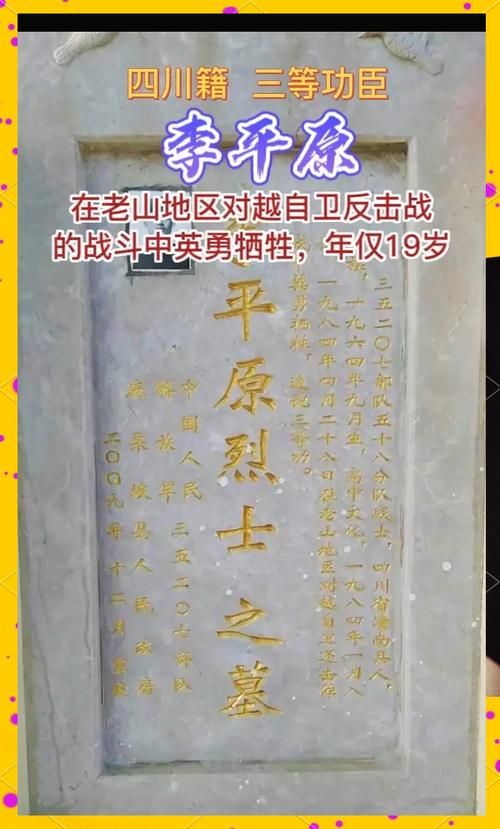 四川籍 三等功臣
李平原
在老山地区对越自卫反击战
的战斗中英勇牺牲，年仅19岁
三五二〇七部队五十八分队战士，四川省潼南县人，
族，一九六四年九月生，高中文化，一九八四年一月入
一九八四年四月二十八日在老山地区对越自卫还击作
英勇牺牲，追记三等功。
李平原烈士之墓
中国人民
解放军 三五二〇七部队
麻栗坡县人民政府
二〇〇九年十二月重立